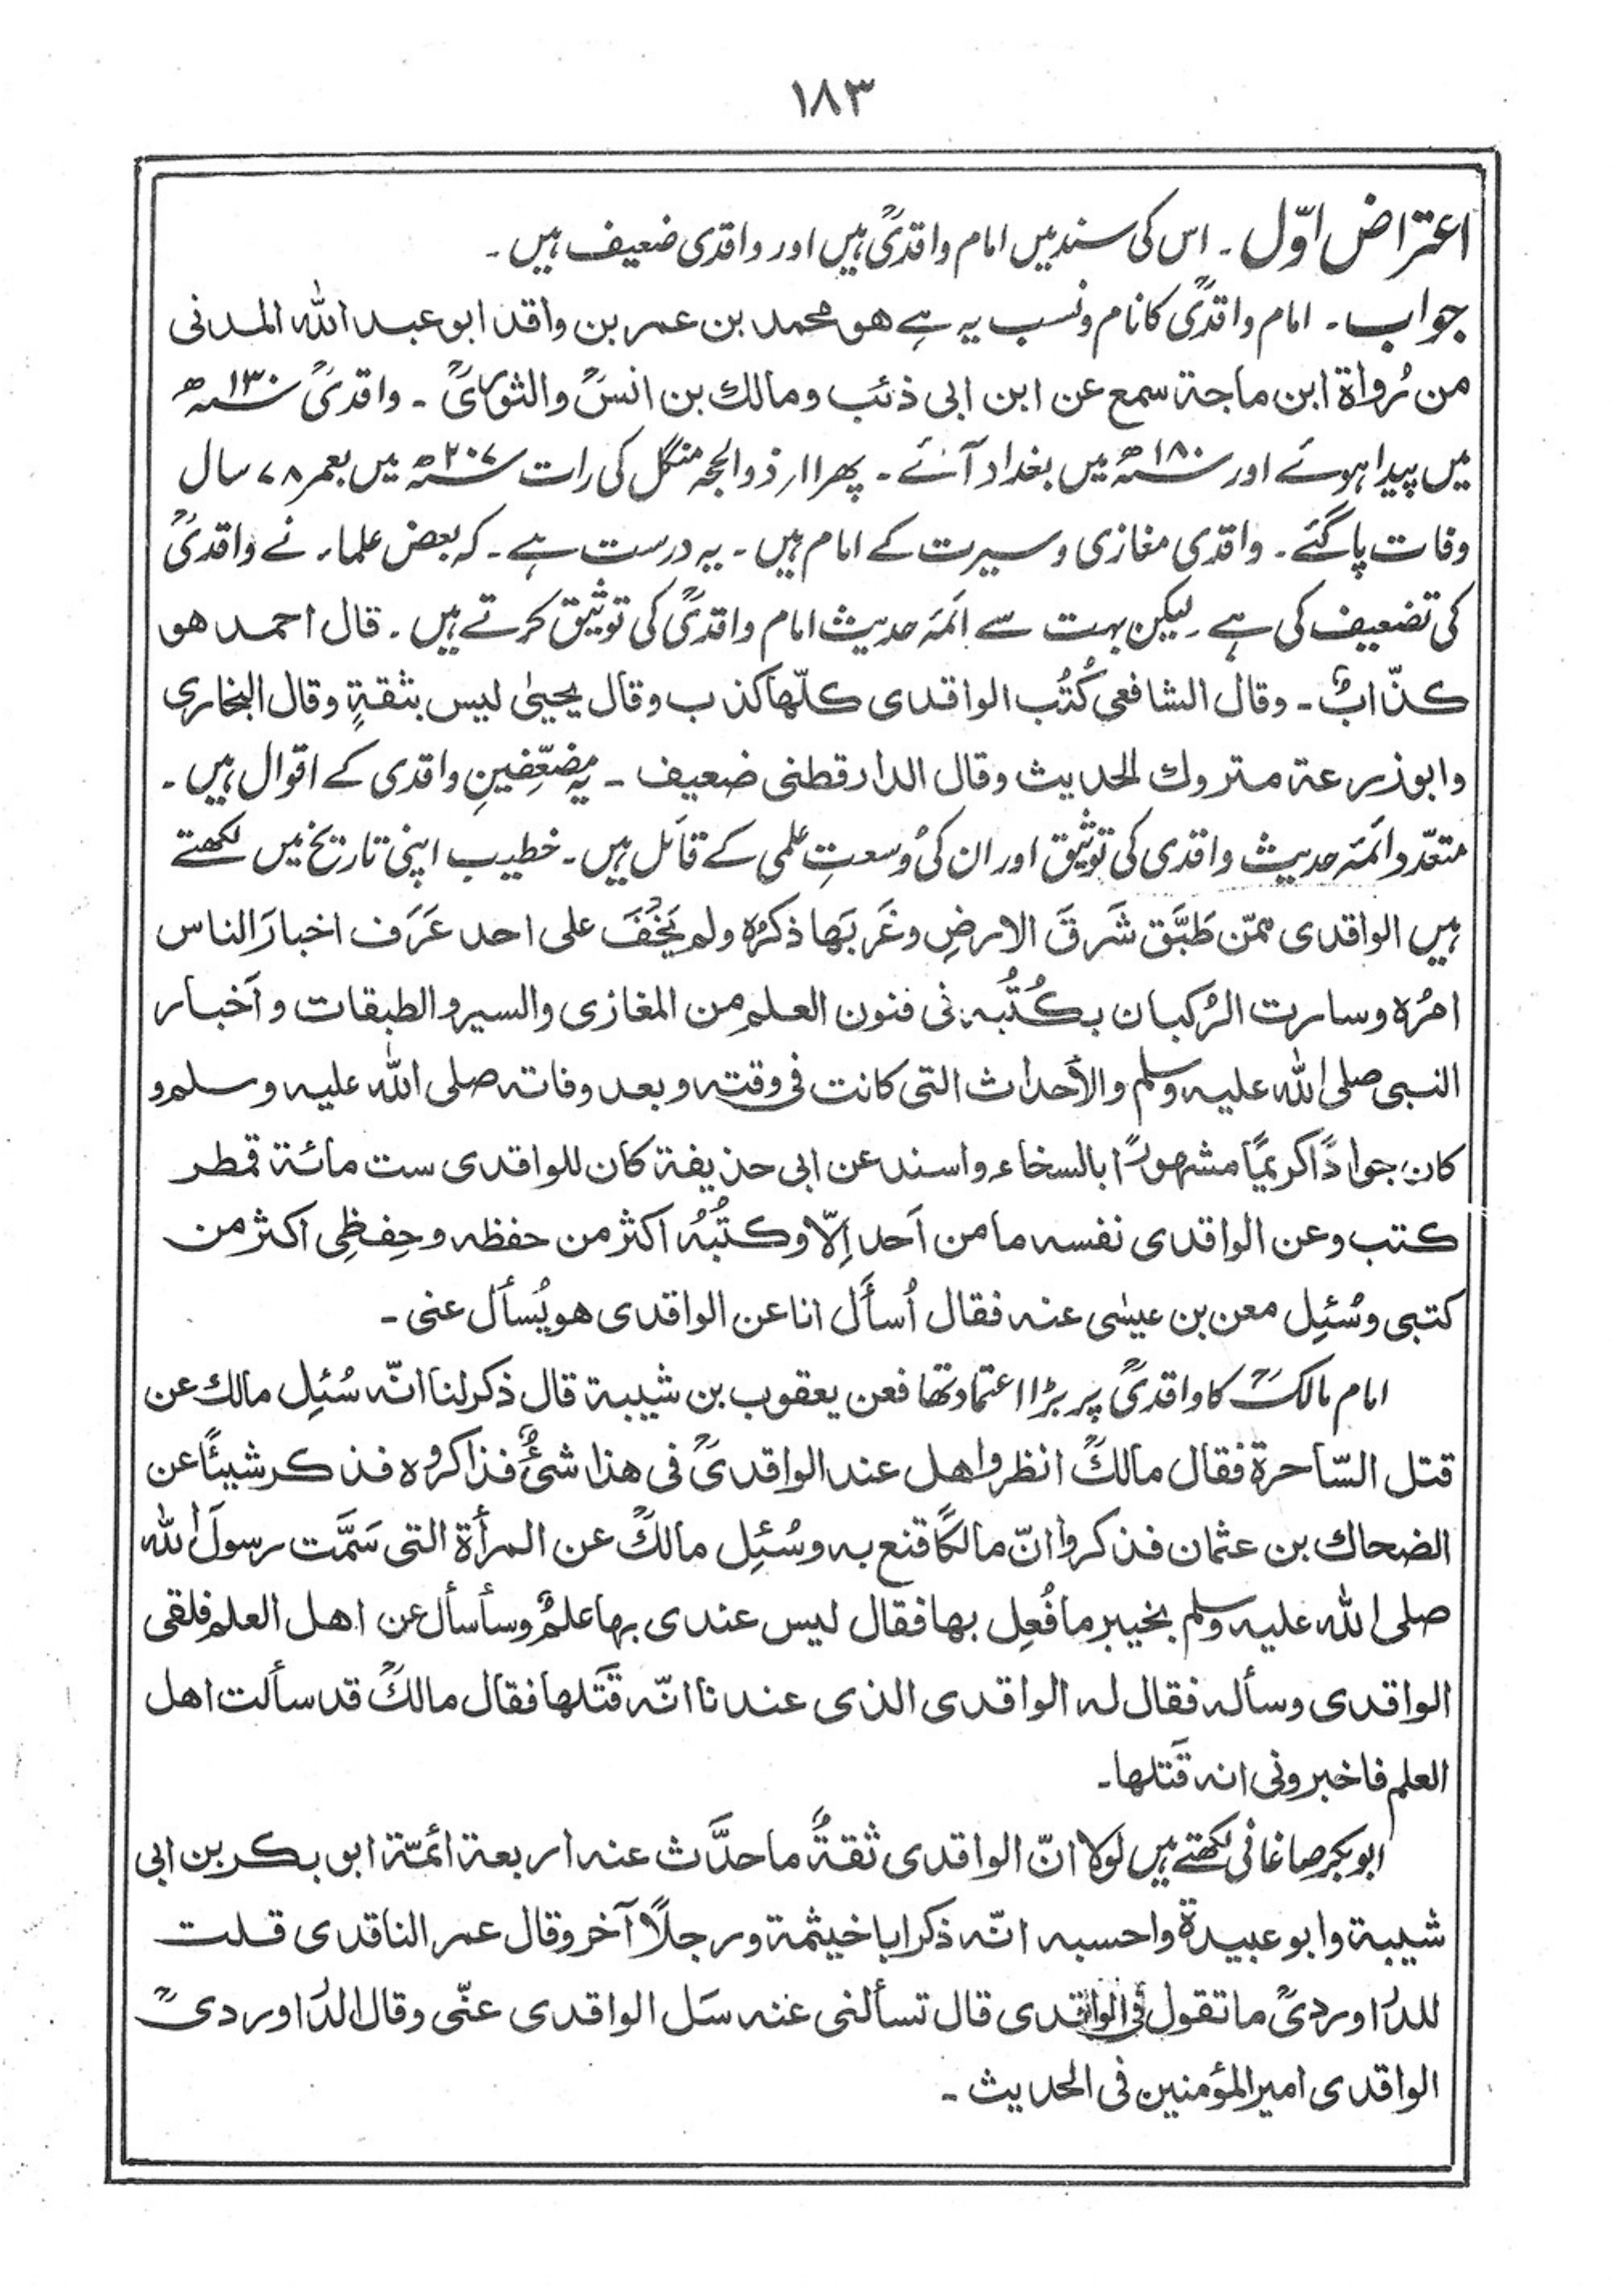 ۱۸۳
اعتراض اوّل ۔ اس کی سند میں امام واقدیؒ ہیں اور واقدی ضعیف ہیں ۔
جواب ۔ امام واقدیؒ کا نام و نسب یہ ہے ھو محمد بن عمر بن واقد ابو عبد اللہ المدنی
من رُواة ابن ماجة سمع عن ابن ابی ذئب و مالك بن انسؒ والثوریؒ ۔ واقدیؒ سنہ ۱۳۰ھ
میں پیدا ہوئے اور سنہ ۱۸۰ھ میں بغداد آئے ۔ پھر ۱۱ر ذوالحجہ منگل کی رات سنہ ۲۰۷ھ میں بعمر ۷۸ سال
وفات پا گئے ۔ واقدی مغازی و سیرت کے امام ہیں ۔ یہ درست ہے ۔ کہ بعض علماء نے واقدیؒ
کی تضعیف کی ہے ۔ لیکن بہت سے ائمۂ حدیث امام واقدیؒ کی توثیق کرتے ہیں ۔ قال احمد ھو
کذّابٌ ۔ وقال الشافعی کُتُب الواقدی کلّھا کذب وقال یحییٰ لیس بثقةٍ وقال البخاری
وابوزرعة متروك الحدیث وقال الدارقطنی ضعیف ۔ یہ مضعّفینِ واقدی کے اقوال ہیں ۔
متعدّد ائمۂ حدیث واقدی کی توثیق اور ان کی وسعتِ علمی کے قائل ہیں ۔ خطیب اپنی تاریخ میں لکھتے
ہیں الواقدی ممّن طَبَّق شَرقَ الارضِ وغَربَھا ذکرُہ ولم یَخفَ علی احد عَرَف اخبارَ الناس
امرُہ وسارت الرُکبان بکُتُبہ فی فنون العلم من المغازی والسیر والطبقات و أخبار
النبی صلی اللہ علیہ وسلم والأحداث التی کانت فی وقتہ و بعد وفاتہ صلی اللہ علیہ وسلم و
کان جوادًا کریمًا مشھورًا بالسخاء واسند عن ابی حذیفة کان للواقدی ست مائة قمطر
کتب وعن الواقدی نفسہ ما من أحد اِلّا وکتُبُہ اکثر من حفظہ و حِفظِی اکثر من
کتبی وسُئِل معن بن عیسٰی عنہ فقال اُسأَل انا عن الواقدی ھو یُسأَل عنی ۔
امام مالکؒ کا واقدیؒ پر بڑا اعتماد تھا فعن یعقوب بن شیبة قال ذکر لنا انّہ سُئِل مالك عن
قتل السّاحرة فقال مالكؒ انظروا ھل عند الواقدیؒ فی ھذا شئٌ فذاکروہ فذکر شیئًا عن
الضحاك بن عثمان فذکروا انّ مالکًا قنع بہ وسُئِل مالكؒ عن المرأة التی سَمَّت رسولَ اللہ
صلی اللہ علیہ وسلم بخیبر ما فُعِل بھا فقال لیس عندی بھا علمٌ وسأسأل عن اھل العلم فلقی
الواقدی وسألہ فقال لہ الواقدی الذی عندنا انّہ قَتَلھا فقال مالكؒ قد سألت اھل
العلم فاخبرونی انہ قَتلھا ۔
ابوبکر صاغانی لکھتے ہیں لولا انّ الواقدی ثقةٌ ما حدَّث عنہ اربعة ائمّة ابو بکر بن ابی
شیبة وابو عبیدة واحسبہ انّہ ذکر ابا خیثمة ورجلًا آخر وقال عمر الناقدی قلت
للدَراوردیؒ ما تقول فی الواقدی قال تسألنی عنہ سَل الواقدی عنّی وقال الدَراوردیؒ
الواقدی امیر المؤمنین فی الحدیث ۔